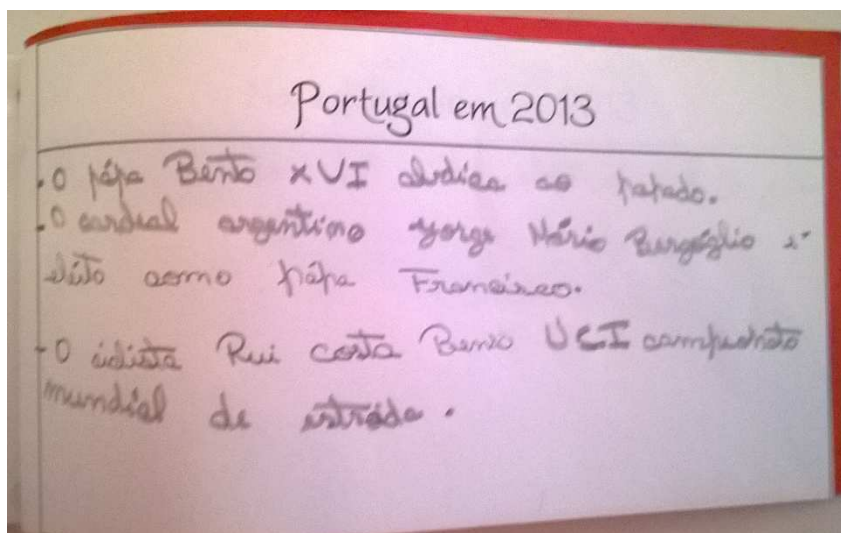 Portugal em 2013
.O pápa Bento XVI abdica ao papado.
.O cardial argentino Yorge Mário Burgóglio é
eleito como pápa Francisco.
-O ciclista Rui costa UCI campeonato
mundial de estráda.